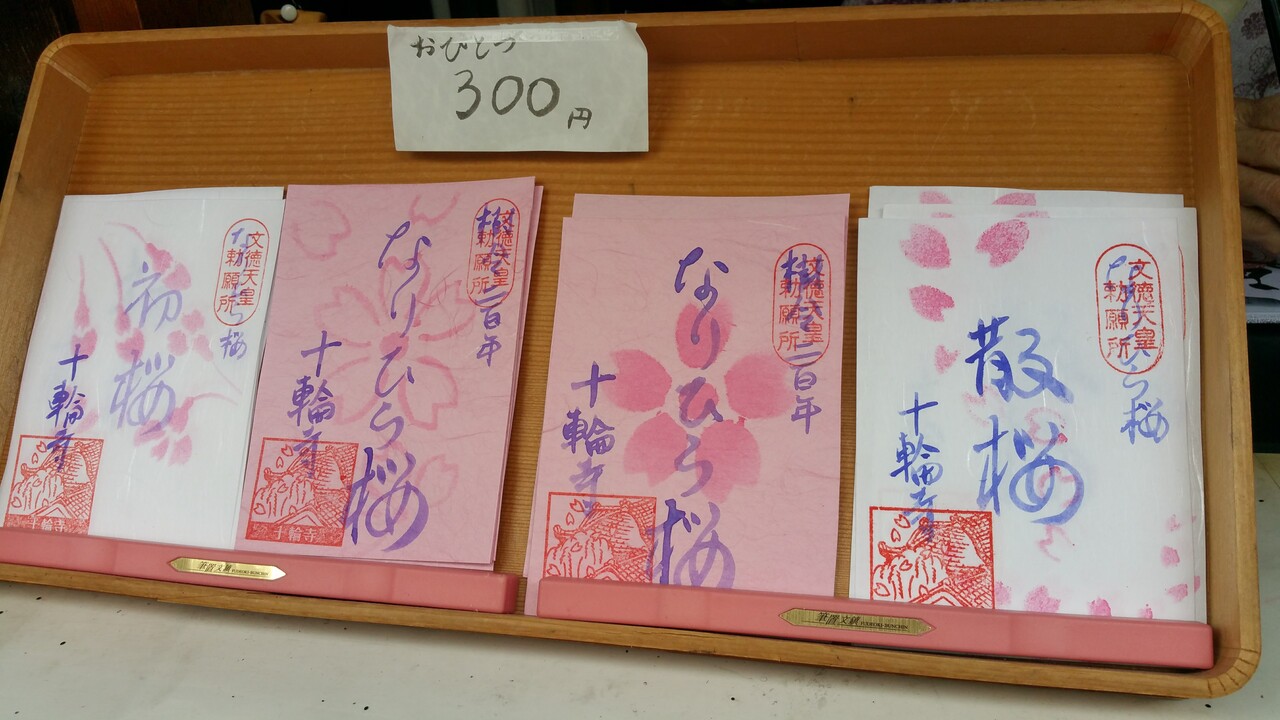 おひとつ
300円
文徳天皇
勅願所
初桜
十輪寺
十輪寺
文徳天皇
勅願所
樹令二百年
なりひら桜
十輪寺
十輪寺
文徳天皇
勅願所
樹令二百年
なりひら桜
十輪寺
文徳天皇
勅願所
なりひら桜
散桜
十輪寺
筆置文鎮
筆置文鎮